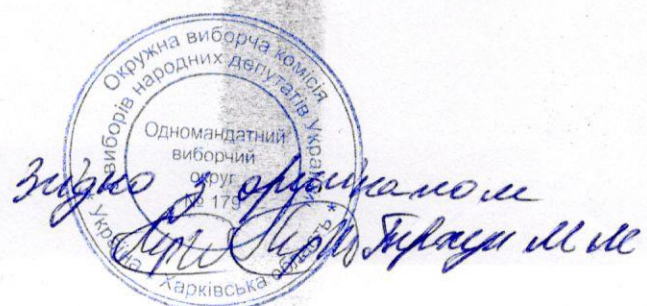 Окружна виборча комісія
з виборів народних депутатів України
Одномандатний
виборчий
округ
№ 179
Україна * Харківська область *
Згідно з оригіналом